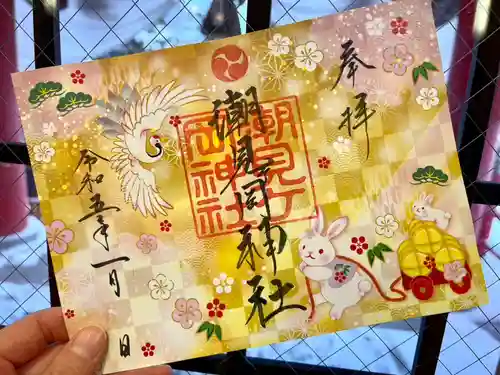 奉拝
潮見岡神社
潮見ヶ
岡神社
令和五年一月 日